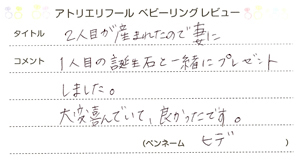 アトリエリフール ベビーリングレビュー
タイトル 2人目が産まれたので妻に
コメント 1人目の誕生石と一緒にプレゼント
しました。
大変喜んでいて、良かったです。
(ペンネーム ヒデ )